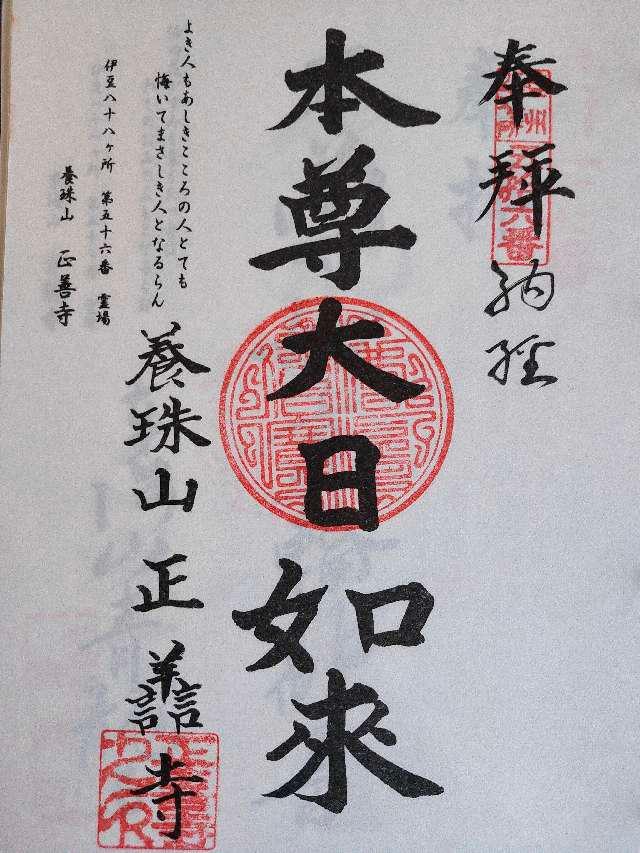 奉拝 納経
本尊大日如来
養珠山 正譱寺
よき人もあしきこころの人とても
悔いてまさしき人となるらん
伊豆八十八ヶ所 第五十六番 霊場
養珠山 正善寺